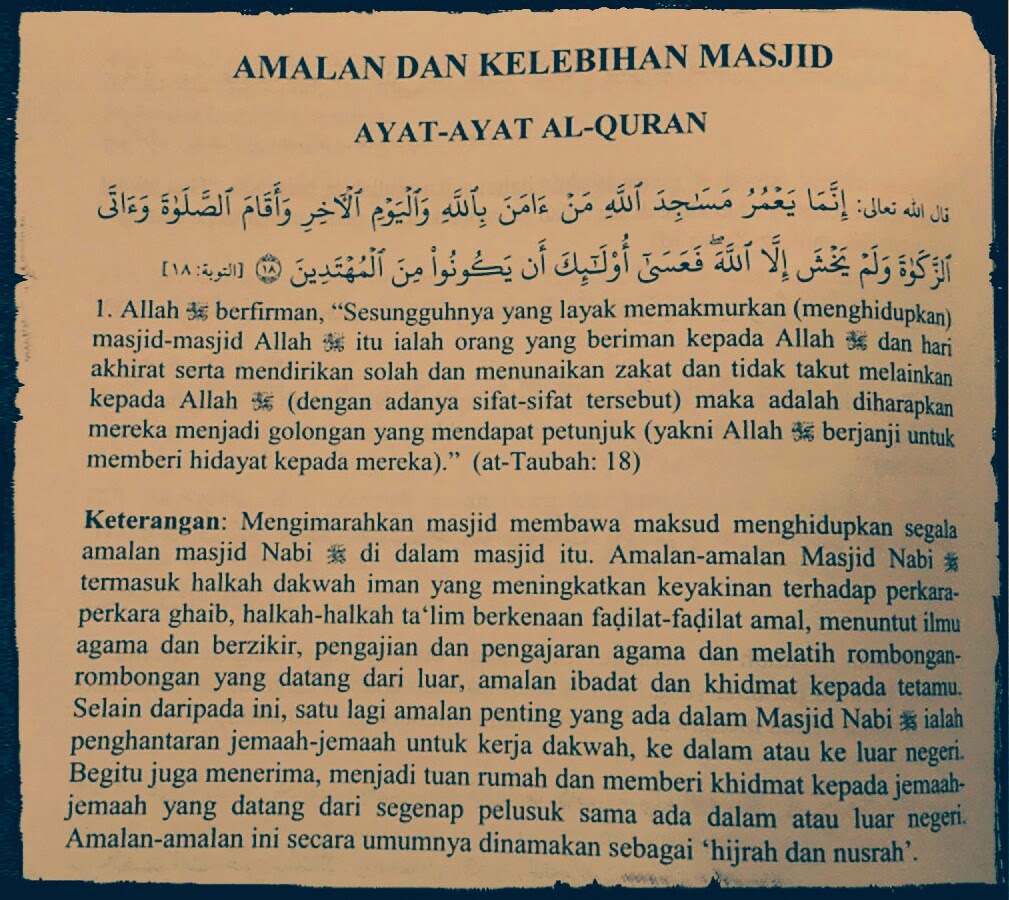 AMALAN DAN KELEBIHAN MASJID
AYAT-AYAT AL-QURAN
قال الله تعالى: إِنَّمَا يَعْمُرُ مَسَـٰجِدَ ٱللَّهِ مَنْ ءَامَنَ بِٱللَّهِ وَٱلْيَوْمِ ٱلْـَٔاخِرِ وَأَقَامَ ٱلصَّلَوٰةَ وَءَاتَى
ٱلزَّكَوٰةَ وَلَمْ يَخْشَ إِلَّا ٱللَّهَ ۖ فَعَسَىٰٓ أُو۟لَـٰٓئِكَ أَن يَكُونُوا۟ مِنَ ٱلْمُهْتَدِينَ ۝١٨ [التوبة: ١٨]
1. Allah ﷻ berfirman, “Sesungguhnya yang layak memakmurkan (menghidupkan)
masjid-masjid Allah ﷻ itu ialah orang yang beriman kepada Allah ﷻ dan hari
akhirat serta mendirikan solah dan menunaikan zakat dan tidak takut melainkan
kepada Allah ﷻ (dengan adanya sifat-sifat tersebut) maka adalah diharapkan
mereka menjadi golongan yang mendapat petunjuk (yakni Allah ﷻ berjanji untuk
memberi hidayat kepada mereka).” (at-Taubah: 18)
Keterangan: Mengimarahkan masjid membawa maksud menghidupkan segala
amalan masjid Nabi ﷺ di dalam masjid itu. Amalan-amalan Masjid Nabi ﷺ
termasuk halkah dakwah iman yang meningkatkan keyakinan terhadap perkara-
perkara ghaib, halkah-halkah ta‘lim berkenaan faḍilat-faḍilat amal, menuntut ilmu
agama dan berzikir, pengajian dan pengajaran agama dan melatih rombongan-
rombongan yang datang dari luar, amalan ibadat dan khidmat kepada tetamu.
Selain daripada ini, satu lagi amalan penting yang ada dalam Masjid Nabi ﷺ ialah
penghantaran jemaah-jemaah untuk kerja dakwah, ke dalam atau ke luar negeri.
Begitu juga menerima, menjadi tuan rumah dan memberi khidmat kepada jemaah-
jemaah yang datang dari segenap pelusuk sama ada dalam atau luar negeri.
Amalan-amalan ini secara umumnya dinamakan sebagai ‘hijrah dan nusrah’.